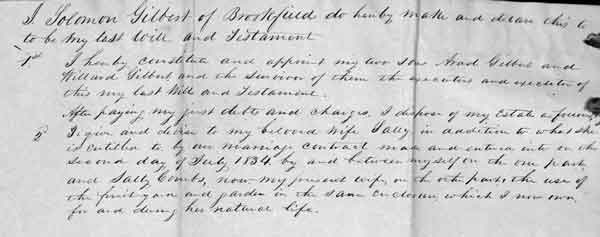 I. Solomon Gilbert of Brookfield do hereby make and declare this to
to be my last Will and Testament
1st I hereby constitute and appoint my two sons Arad Gilbert and
Willard Gilbert and the survivor of them the executors and executor of
this my last Will and Testament.
After paying my just debts and charges, I dispose of my Estate as follows
2 I give and devise to my beloved Wife Sally in addition to what she
is entitled to by our marriage contract made and entered into on the
second day of July 1834 by and between myself on the one part
and Sally Combs, now my present wife, on the other part, the use of
the front yard and garden in the same enclosure which I now own
for and during her natural life.